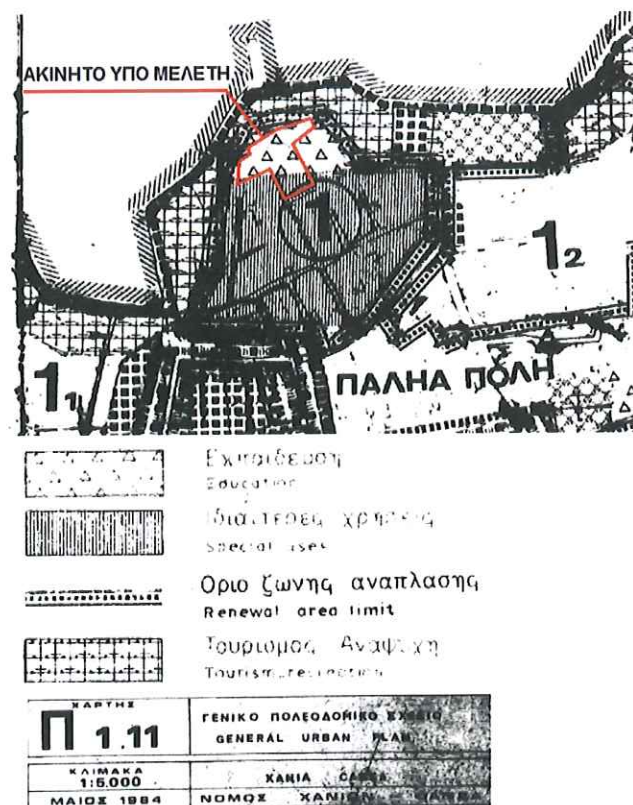 ΑΚΙΝΗΤΟ ΥΠΟ ΜΕΛΕΤΗ
1
1₂
1₁
ΠΑΛΗΑ ΠΟΛΗ
Εκπαιδευση
Education
Ιδιαιτερες χρησεις
Special uses
Οριο ζωνης αναπλασης
Renewal area limit
Τουρισμος Αναψυχη
Tourism, recreation
ΧΑΡΤΗΣ
Π 1.11
ΓΕΝΙΚΟ ΠΟΛΕΟΔΟΜΙΚΟ ΣΧΕΔΙΟ
GENERAL URBAN PLAN
ΚΛΙΜΑΚΑ
1:5.000
ΧΑΝΙΑ
ΜΑΙΟΣ 1984
ΝΟΜΟΣ ΧΑΝΙΩΝ